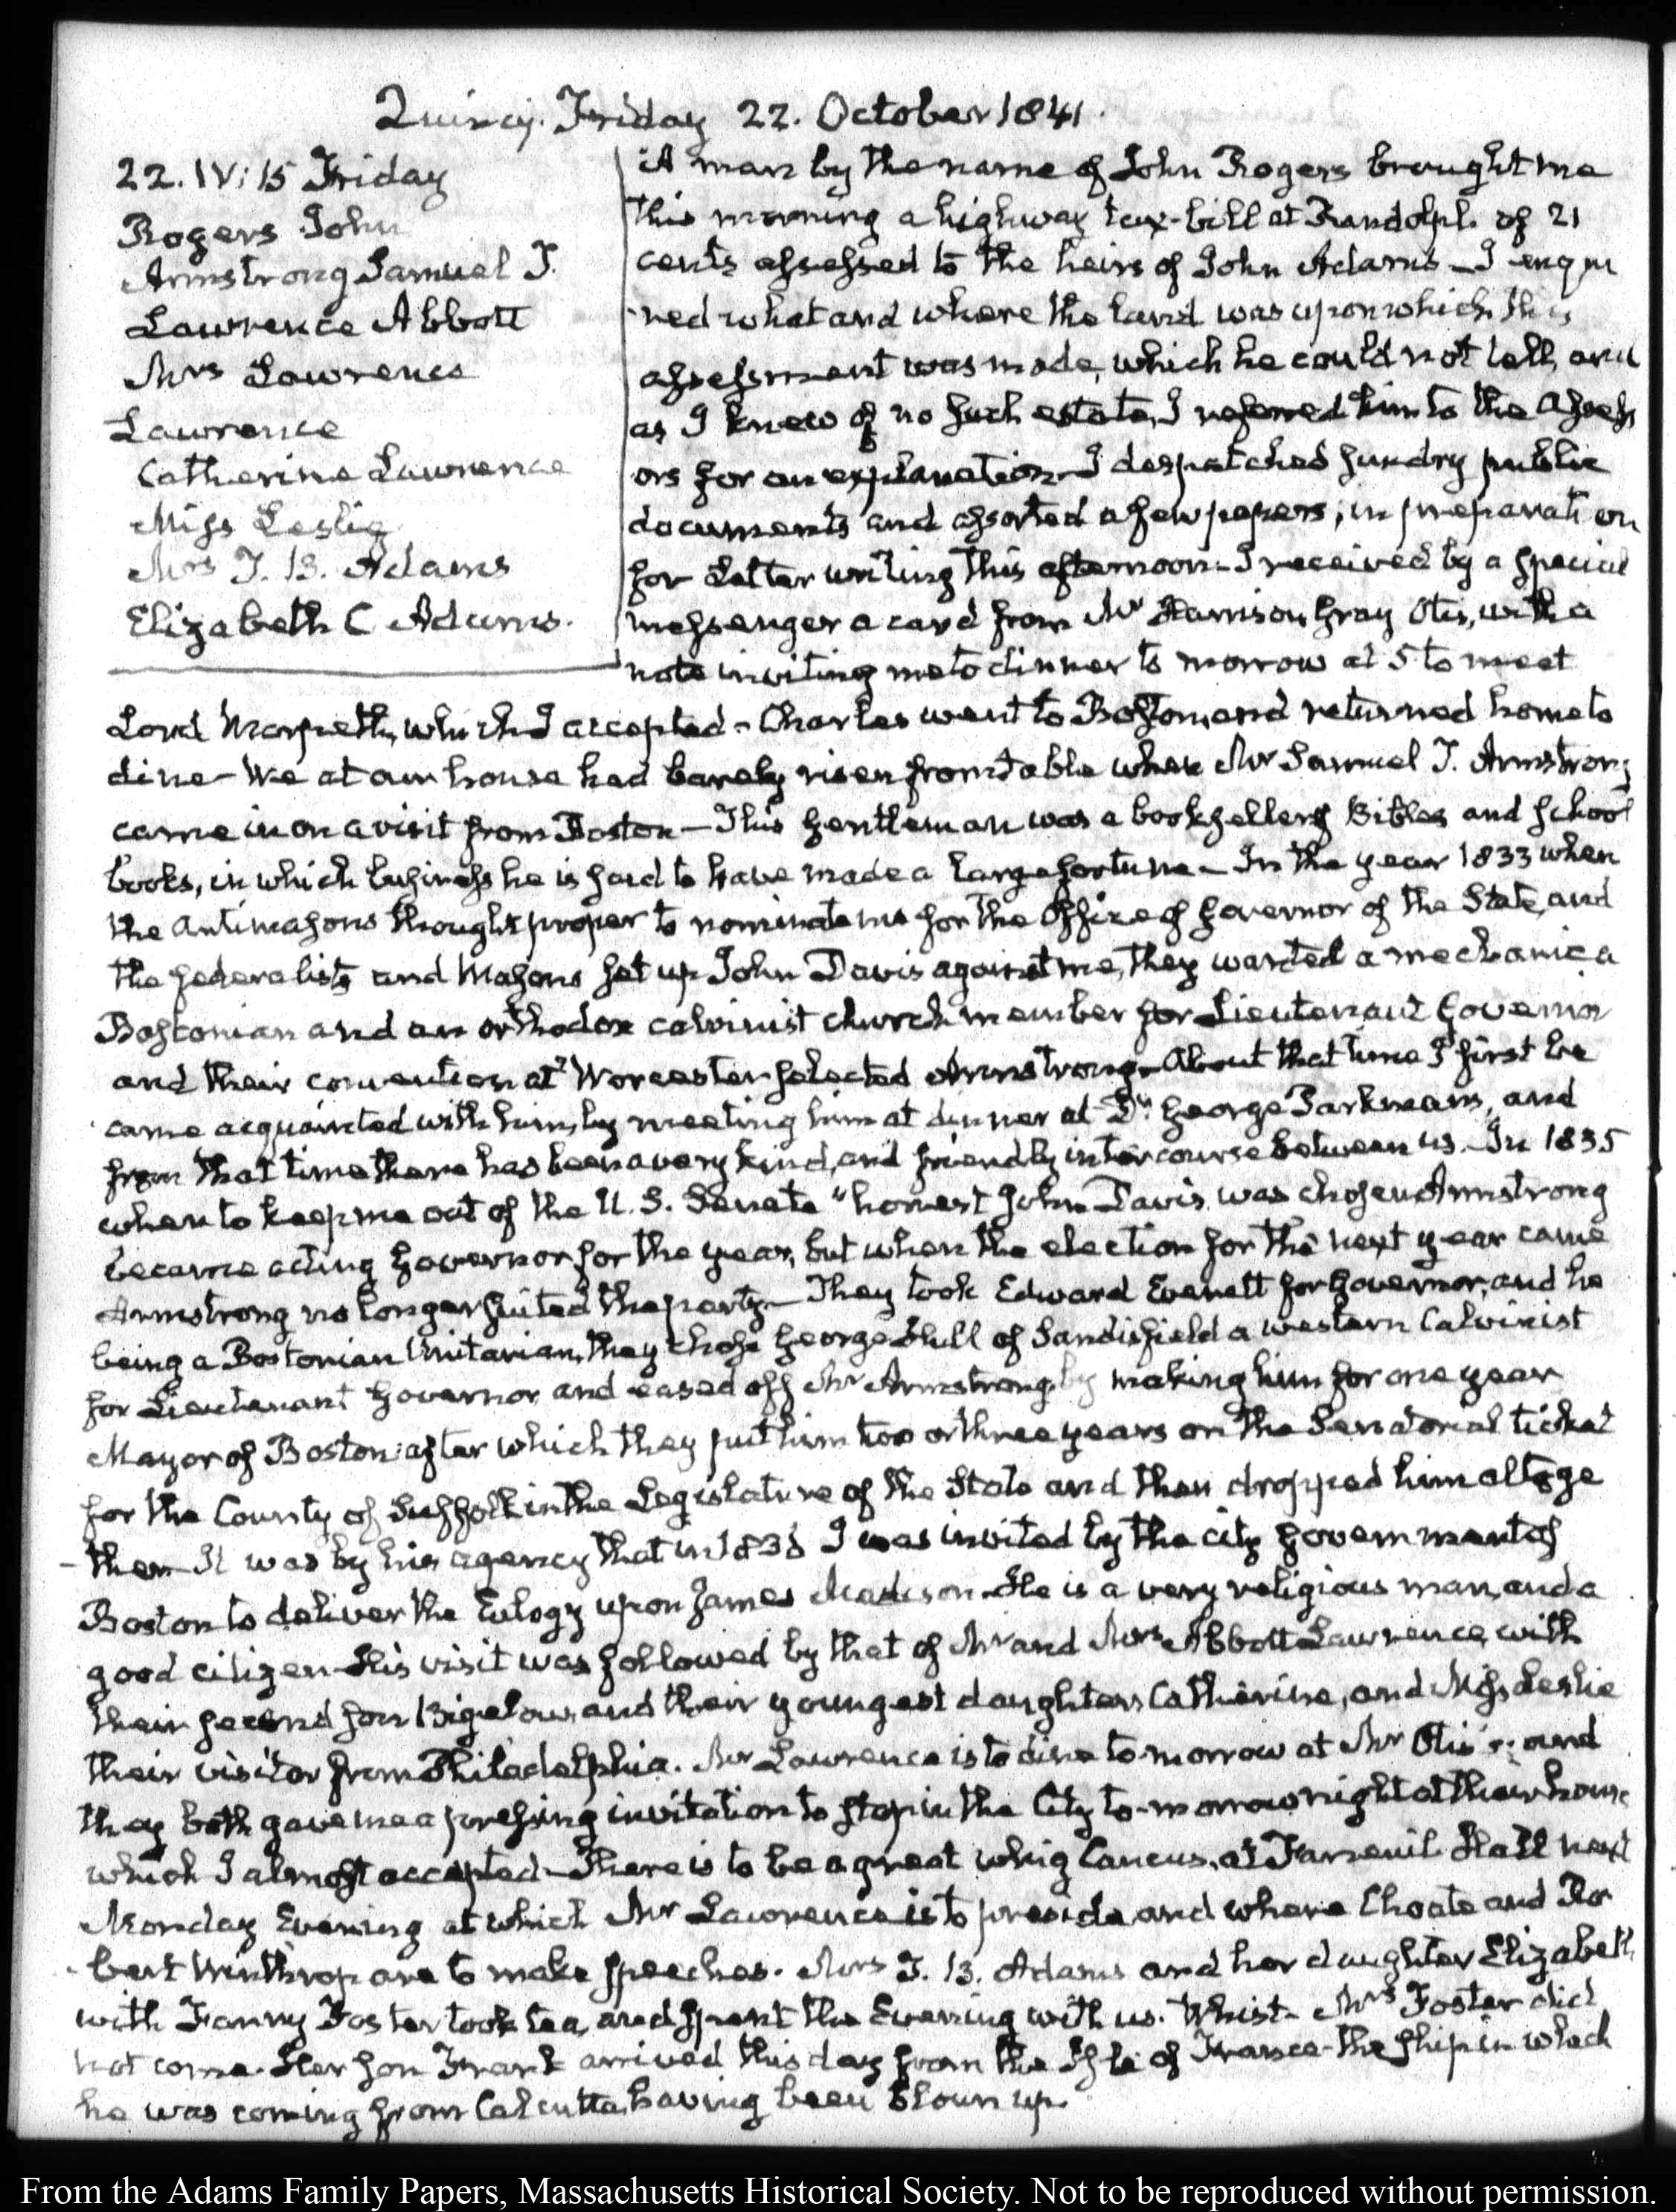 Quincy. Friday 22. October 1841.
22. IV: 15 Friday
Rogers John
Armstrong Samuel T.
Lawrence Abbott
Mrs Lawrence
Lawrence
Catherine Lawrence
Miss Leslie
Mrs T. B. Adams
Elizabeth C Adams.
A man by the name of John Rogers brought me
this morning a highway tax-bill at Randolph of 21
cents assessed to the heirs of John Adams—I enqui
-red what and where the land was upon which this
assessment was made, which he could not tell, and
as I knew of no such estate, I referred him to the Assess
ors for an explanation—I despatched sundry public
documents and assorted a few papers, in preparation
for Letter writing this afternoon—I received by a special
messenger a card from Mr Harrison Gray Otis, with a
note inviting me to dinner to morrow at 5 to meet
Lord Morpeth, which I accepted—Charles went to Boston, and returned home to
dine—We at our house had barely risen from table when Mr Samuel T. Armstrong
came in on a visit from Boston—This Gentleman was a bookseller of Bibles and school
books, in which business he is said to have made a large fortune—In the year 1833 when
the Antimasons thought proper to nominate me for the Office of Governor of the State, and
the federalists and Masons set up John Davis against me, they wanted a mechanic a
Bostonian and an orthodox calvinist church member for Lieutenant Governor
and their convention at Worcester selected Armstrong—About that time I first be
came acquainted with him, by meeting him at dinner at Dr. George Parkman's, and
from that time there has been a very kind, and friendly intercourse between us. In 1835
when to keep me out of the U. S. Senate "honest John Davis was chosen Armstrong
became acting Governor for the year, but when the election for the next year came
Armstrong no longer suited the party—They took Edward Everett for Governor, and he
being a Bostonian Unitarian, they chose George Hull of Sandisfield a western Calvinist
for Lieutenant Governor, and eased off Mr Armstrong by making him for one year
Mayor of Boston: after which they put him two or three years on the Senatorial ticket
for the County of Suffolk in the Legislature of the State and then dropped him altoge
-ther—It was by his agency that in 1836 I was invited by the city government of
Boston to deliver the Eulogy upon James Madison—He is a very religious man, and a
good citizen—His visit was followed by that of Mr and Mrs Abbott Lawrence, with
their second son Bigelow, and their youngest daughter Catherine, and Miss Leslie
their visitor from Philadelphia. Mr Lawrence is to dine to-morrow at Mr Otis's; and
they both gave me a pressing invitation to stop in the City to-morrow night at their house
which I almost accepted—There is to be a great whig Caucus, at Faneuil Hall next
Monday Evening at which Mr Lawrence is to preside, and where Choate and Ro
-bert Winthrop are to make speeches. Mrs T. B. Adams and her daughter Elizabeth
with Fanny Foster took tea, and spent the Evening with us. Whist—Mrs Foster did
not come. Her son Frank arrived this day from the Isle of France—the ship in which
he was coming from Calcutta, having been blown up.
From the Adams Family Papers, Massachusetts Historical Society. Not to be reproduced without permission.